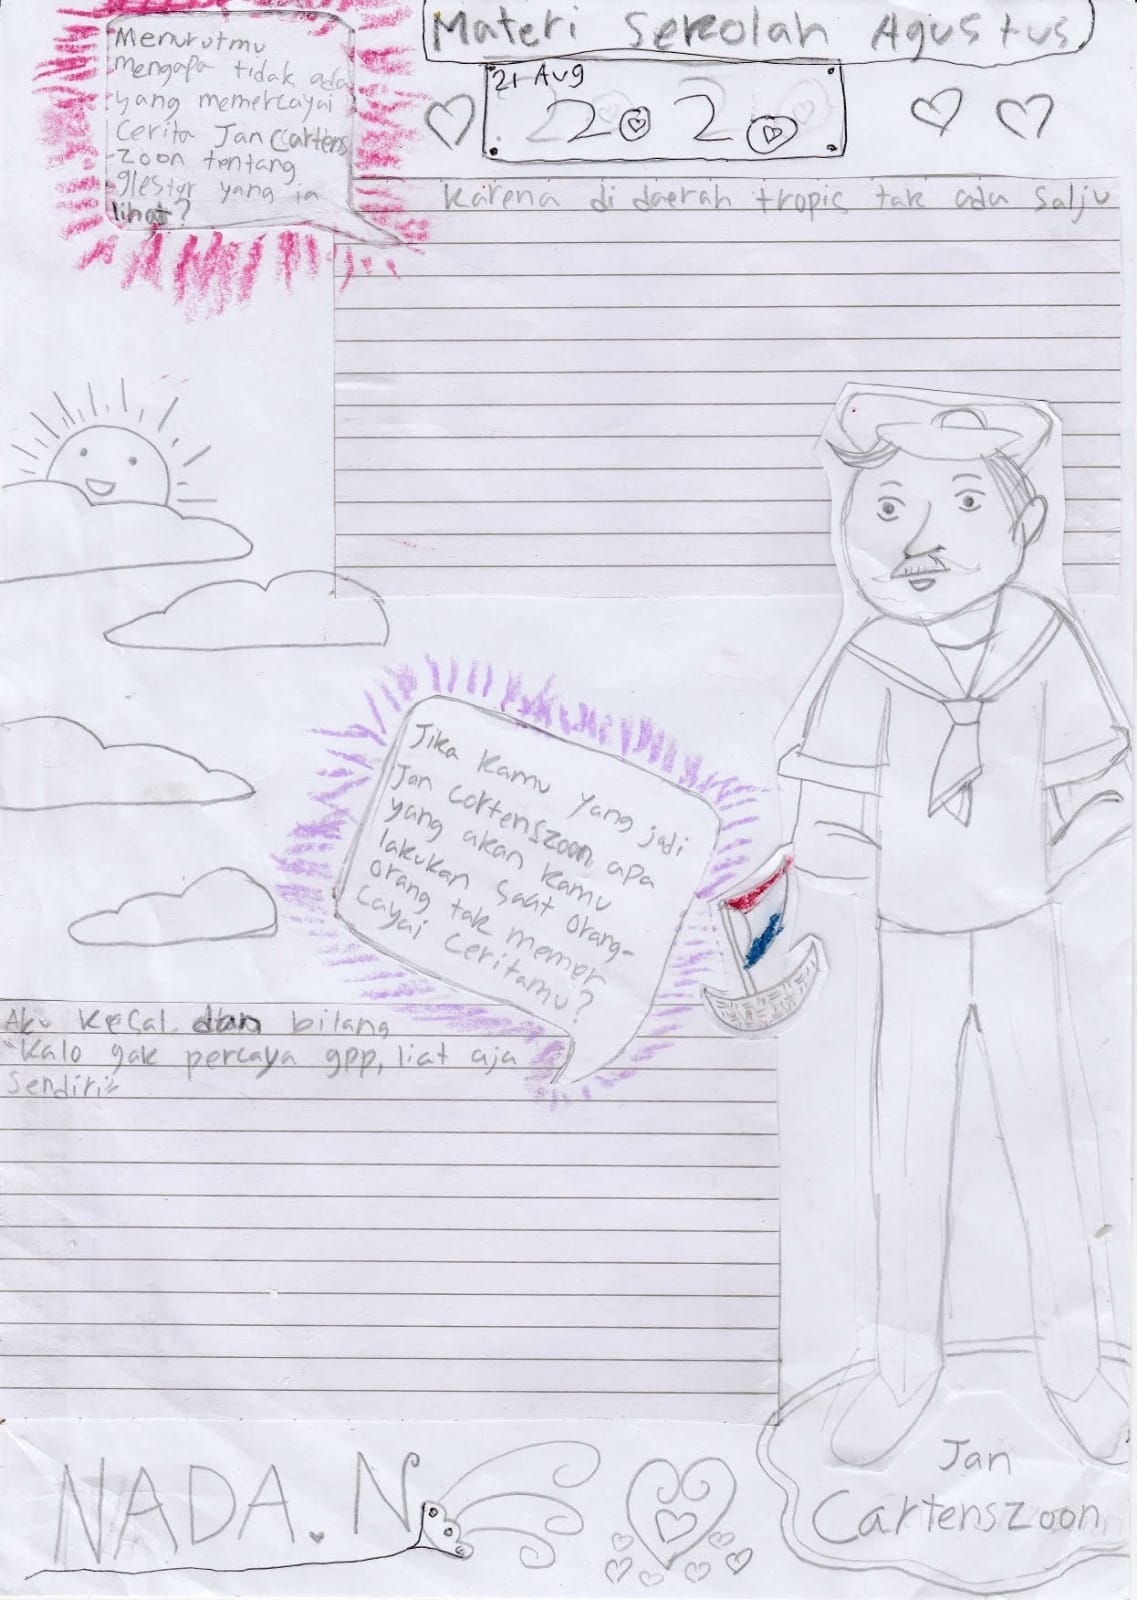 Materi Sekolah Agustus
21 Aug
2020
Menurutmu
mengapa tidak ada
yang memercayai
cerita Jan Cartens
zoon tentang
glestyr yang ia
lihat?
Karena di daerah tropis tak ada salju
Jika kamu yang jadi
Jan Cartenszoon apa
yang akan kamu
lakukan saat orang-
orang tak memer
cayai ceritamu?
Aku kesal dan bilang
"Kalo gak percaya gpp, liat aja
sendiri"
NADA. N
Jan
Cartenszoon